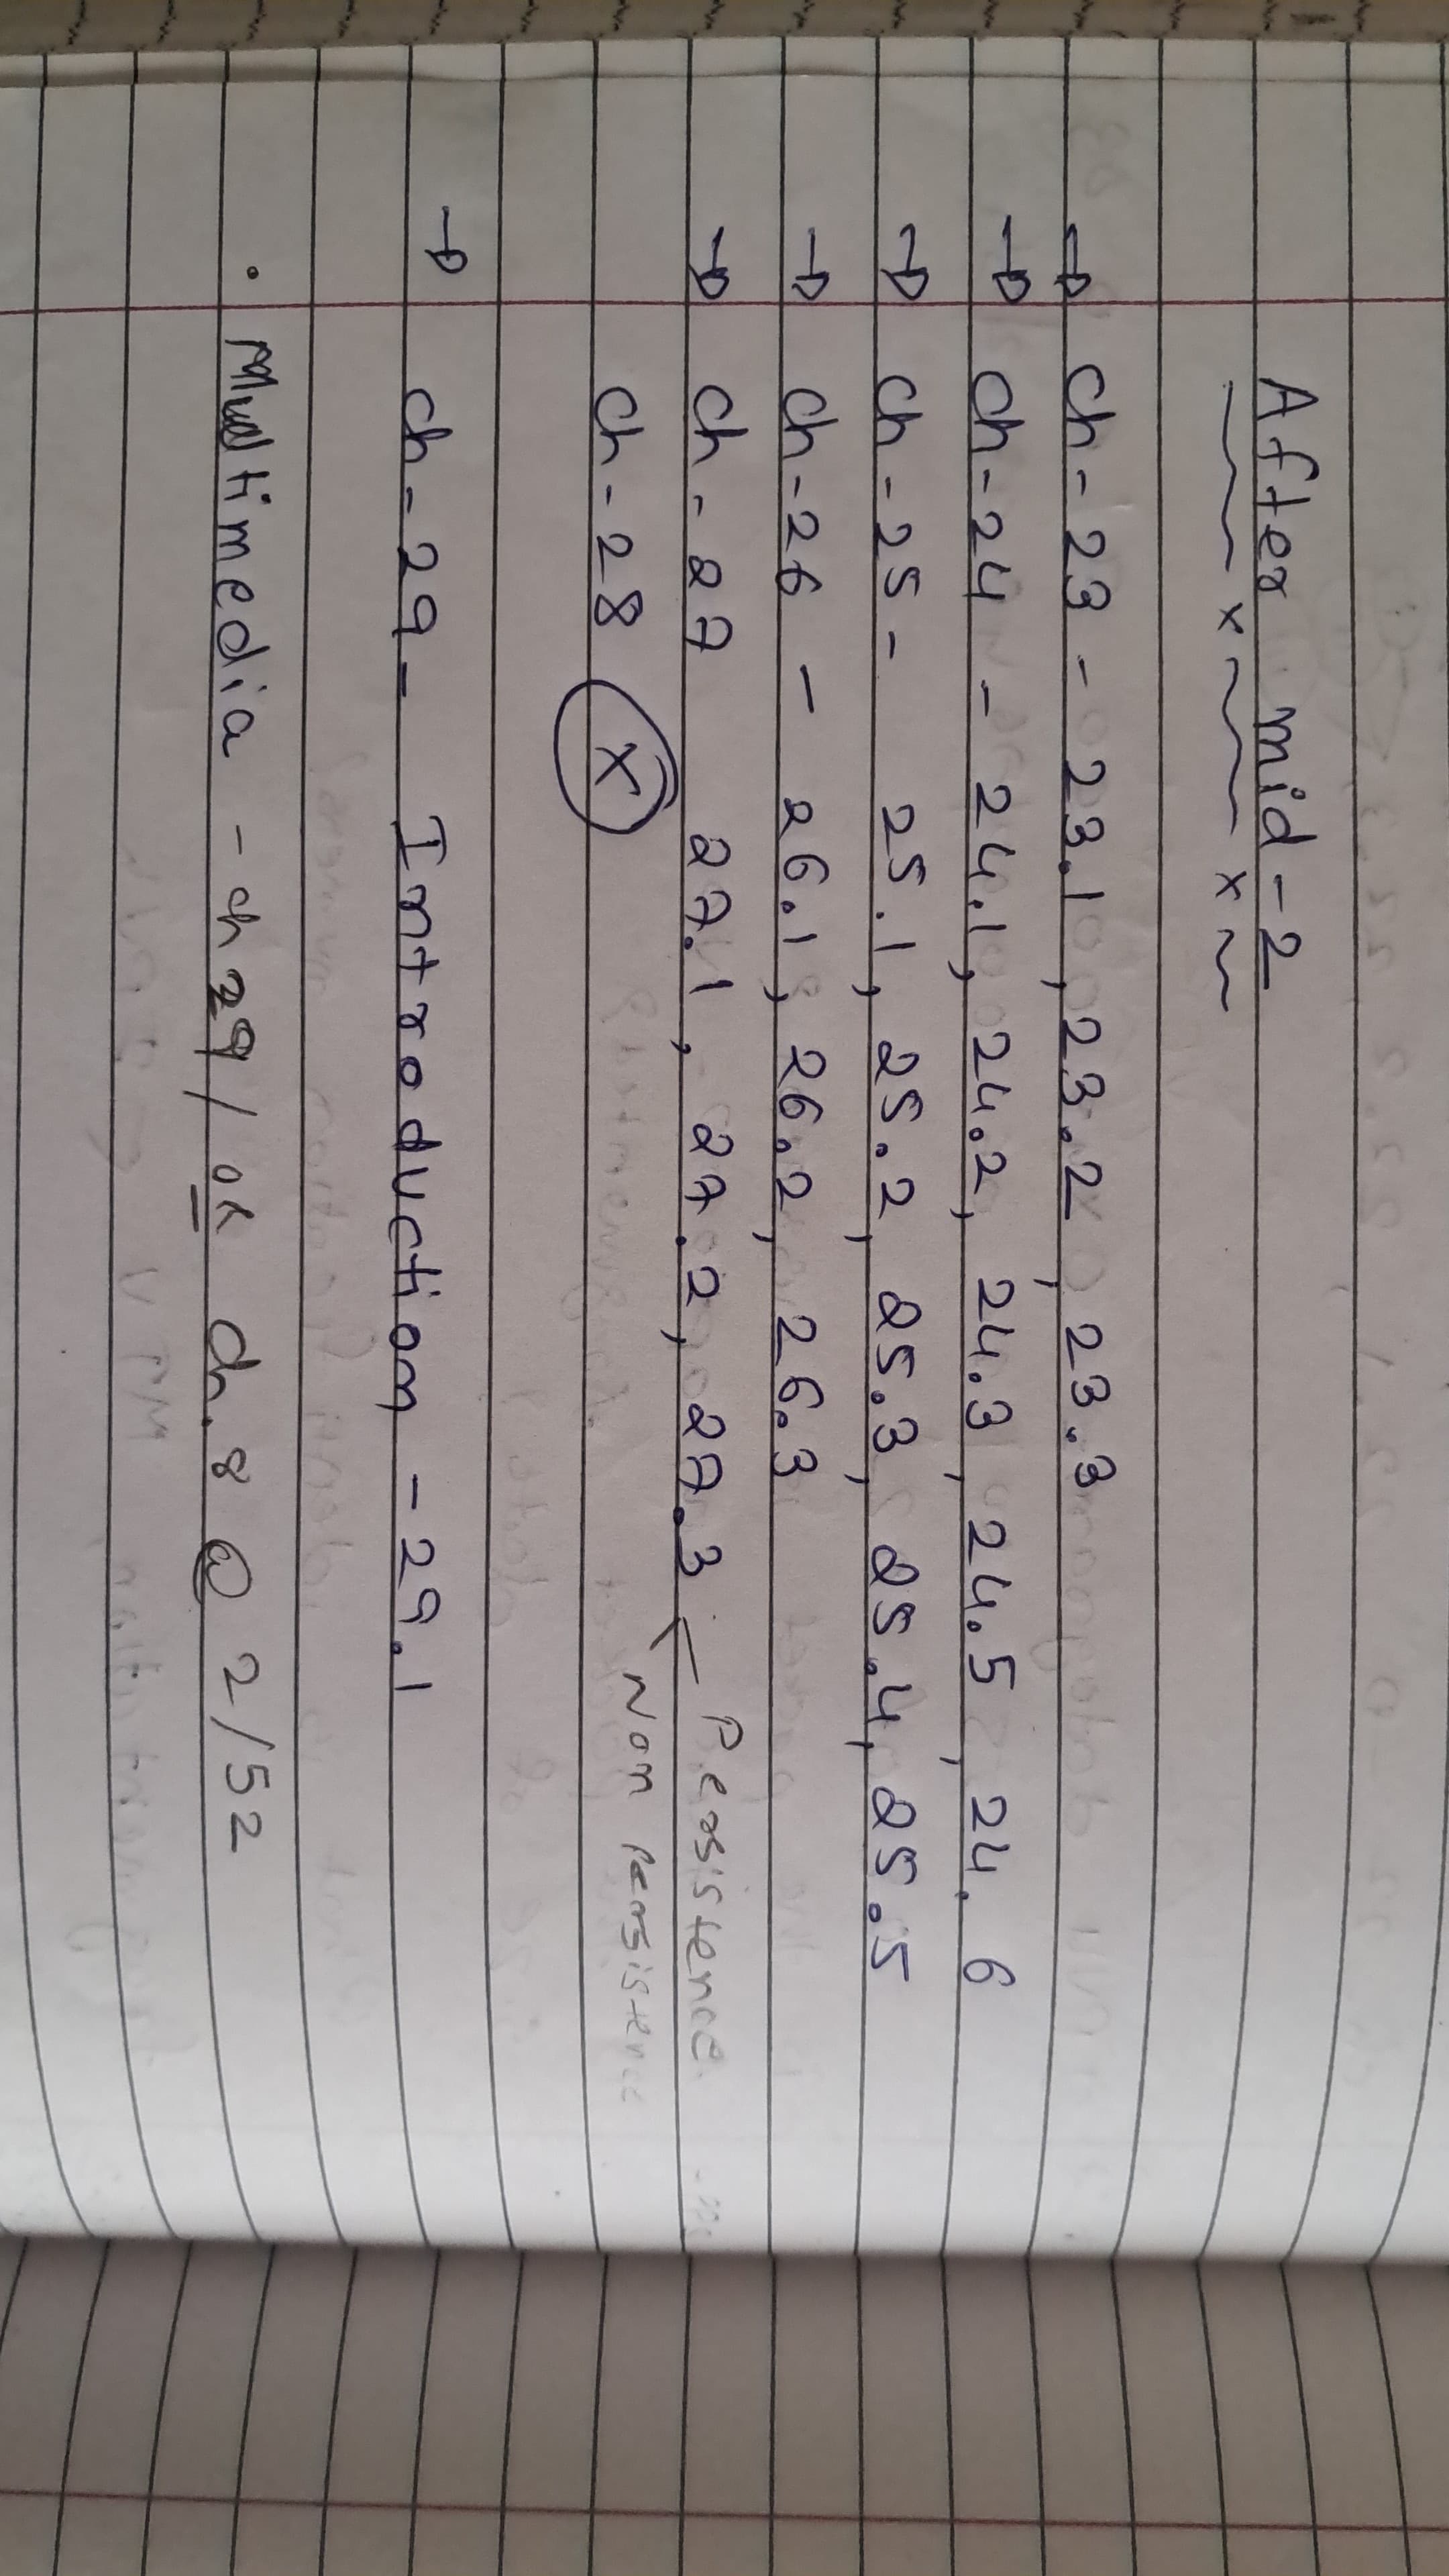 After mid-2
Ch-23 - 23.1, 23.2, 23.3
Ch-24 - 24.1, 24.2, 24.3, 24.5, 24.6
Ch-25 - 25.1, 25.2, 25.3, 25.4, 25.5
Ch-26 - 26.1, 26.2, 26.3
Ch-27 27.1, 27.2, 27.3 Persistence
Non persistence
Ch-28 X
Ch-29- Introduction - 29.1
Multimedia - ch 29 / OR Ch. 8 @ 2/52